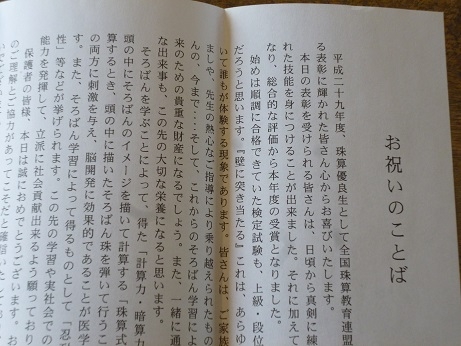 お祝いのことば
平成二十九年度、珠算優良生として全国珠算教育連盟
る表彰に輝かれた皆さん心からお喜びいたします。
本日の表彰を受けられる皆さんは、日頃から真剣に練
れた技能を身につけることが出来ました。それに加えて
なり、総合的な評価から本年度の受賞となりました。
始めは順調に合格できていた検定試験も、上級・段位
だろうと思います。『壁に突き当たる』これは、あらゆ
いて誰もが体験する現象であります。皆さんは、ご家族
ましや、先生の熱心なご指導により乗り越えられたもの
んの、今まで・・・そして、これからのそろばん学習によ
来のための貴重な財産になるでしょう。また、一緒に通
な出来事も、この先の大切な栄養になると思います。
そろばんを学ぶことによって、得た「計算力・暗算力
頭の中にそろばんのイメージを描いて計算する「珠算式
算するとき、頭の中に描いたそろばん珠を弾いて行うこ
の両方に刺激を与え、脳開発に効果的であることが医学
す。また、そろばん学習によって得るものとして「忍耐
性」等などが挙げられます。この先の学習や実社会での
能力を発揮して、立派に社会貢献出来るよう願っており
保護者の皆様、本日は誠におめでとうございます。お
のご理解とご協力があってこそだと確信いたしてお